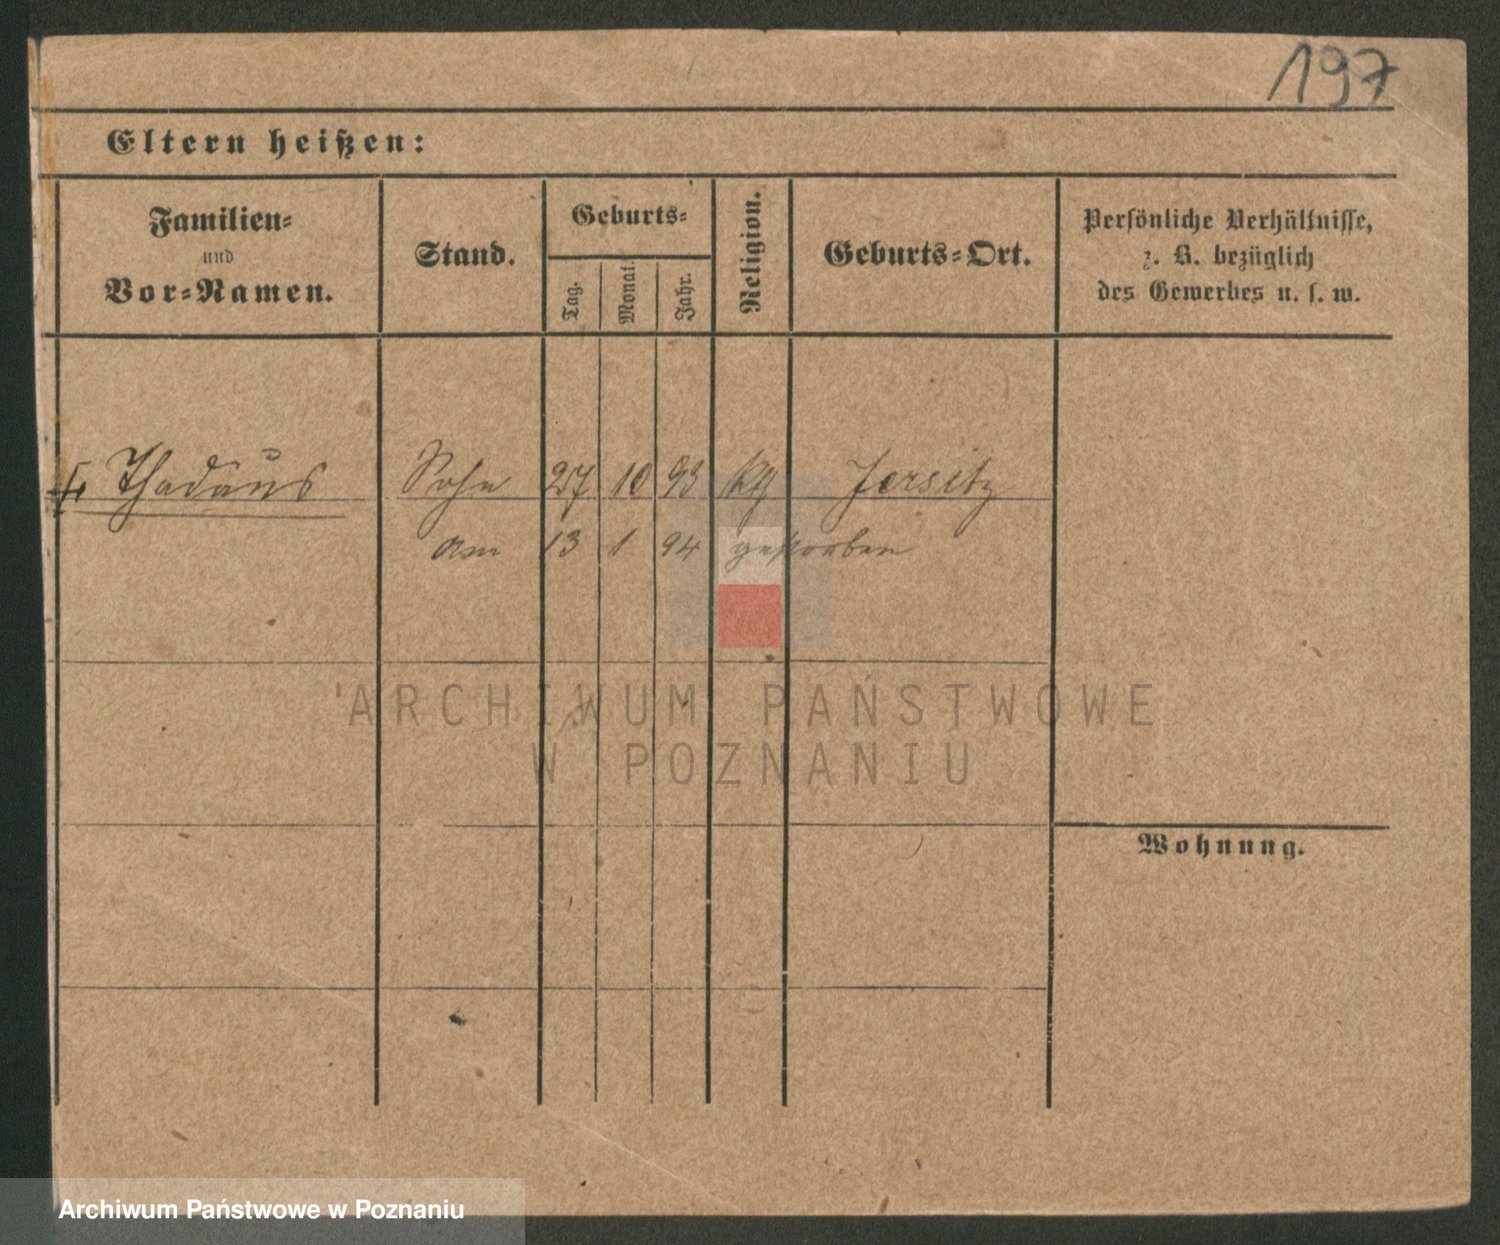 197
Eltern heißen:
Familien-
und
Vor-Namen.
Stand.
Geburts-
Tag.
Monat.
Jahr.
Religion.
Geburts-Ort.
Persönliche Verhältnisse,
z. B. bezüglich
des Gewerbes u. s. w.
Thadäus Sohn 27 10 93 kg Jersitz
am 13 1 94 gestorben
ARCHIWUM PAŃSTWOWE
W POZNANIU
Wohnung.
Archiwum Państwowe w Poznaniu